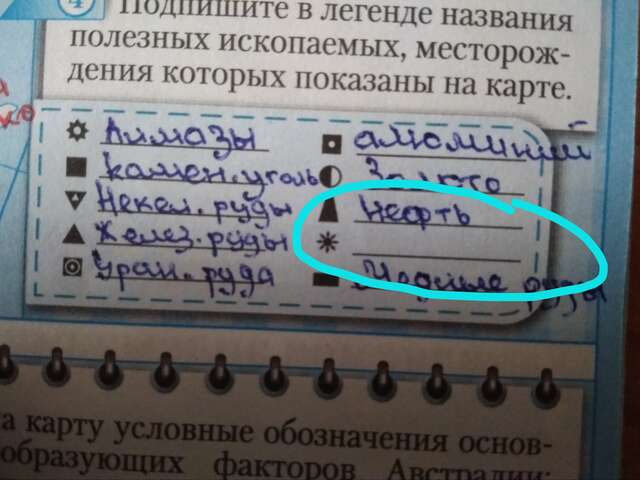 4 Подпишите в легенде названия
полезных ископаемых, месторож-
дения которых показаны на карте.
Алмазы
алюминий
камен. уголь
Золото
Некел. руды
Нефть
Желез. руды
Уран. руда
руды
на карту условные обозначения основ-
образующих факторов Австралии: